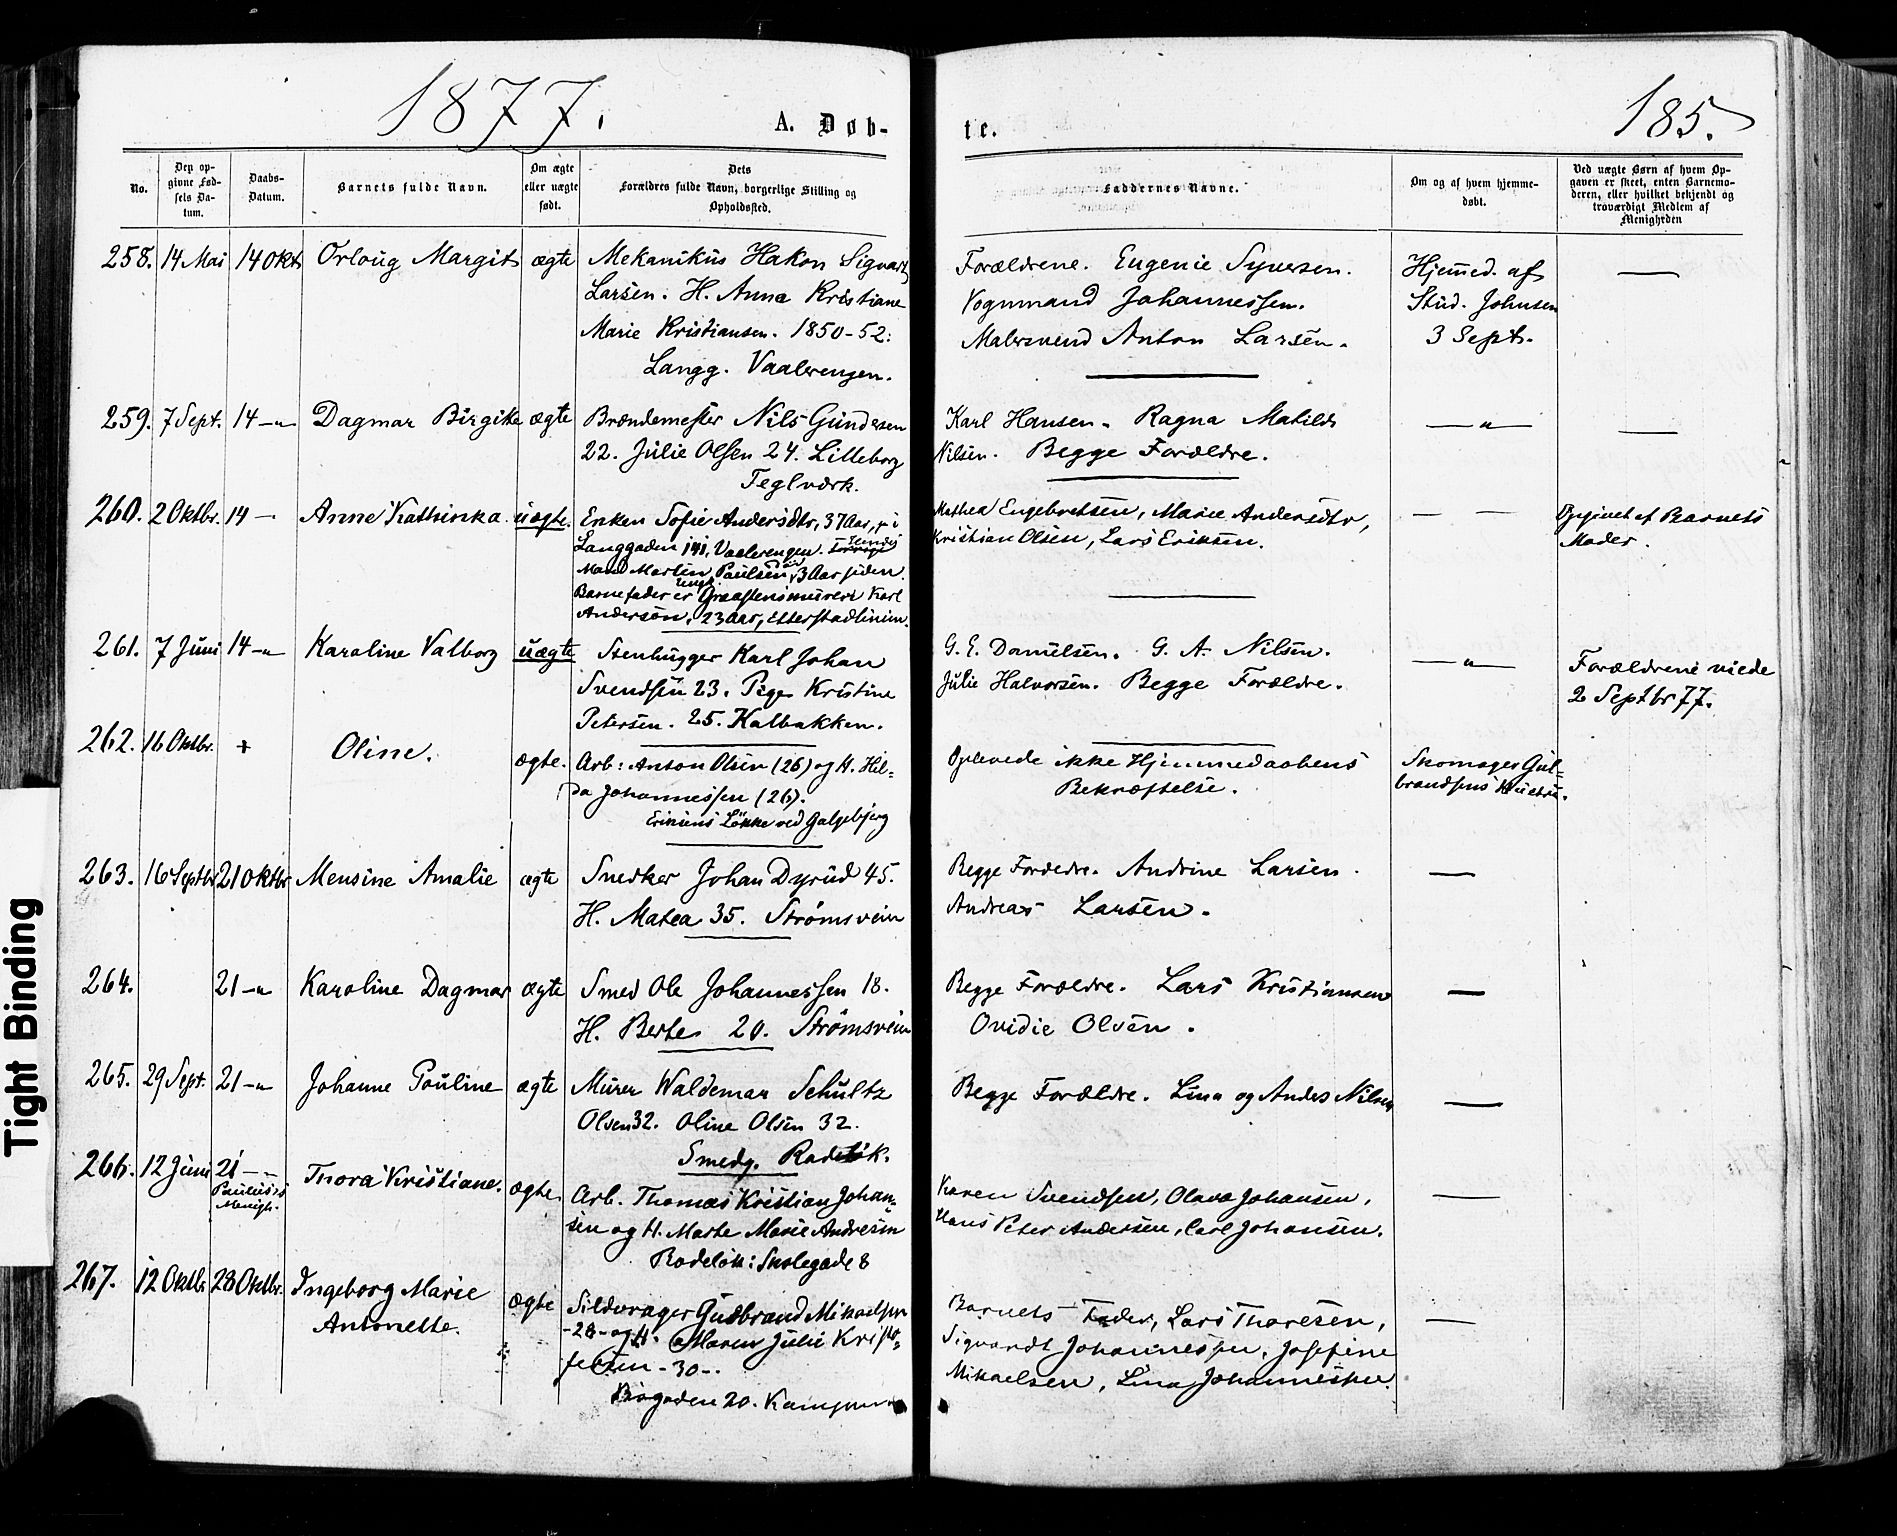 1877.
A. Døb-
te.
185.
No.
Den op-
givne Fød-
sels Da-
tum.
Daabs-
Datum.
Barnets fulde Navn.
Om ægte
eller uægte
født.
Dets
Forældres fulde Navn, borgerlige Stilling og
Opholdssted.
Faddernes Navne.
Om og af hvem hjemme-
døbt.
Ved uægte Børn af hvem Op-
gaven er skeet, enten Barnemo-
deren, eller hvilket bekjendt og
troværdigt Medlem af
Menigheden
258. 14 Mai 14 Okt. Orloug Margit ægte
Mekanikus Hakon Sigvart
Larsen. H. Anna Kristiane
Marie Kristiansen. 1850-52:
Langg. Vaalerengen.
Forældrene. Eugenie Syversen.
Vognmand Johannessen.
Malersvend Anton Larsen.
Hjemmed. af
Stud. Johnsen
3 Sept.
—
259. 7 Sept. 14 –"– Dagmar Birgitte ægte
Brændemester Nils Gundersen
22. Julie Olsen 24. Lilleborg
Teglværk.
Karl Hansen. Ragna Matilde
Nilsen. Begge Forældre.
–"–
—
260. 2 Oktbr. 14 – Anne Kathinka uægte.
Enken Sofie Andersdtr, 37 Aar, i
Langgaden 141, Vaalerengen. Hendes
Mand Martin Paulsen 3 Aar siden.
Barnefader er Ungk. Graastensmurer Karl
Andersen, 23 Aar, Etterstadlinien.
Mathea Engebretsen, Marie Andersdtr,
Kristian Olsen, Lars Eriksen.
— —
Opgivet af Barnets
Moder.
261. 7 Juni 14 –"– Karoline Valborg uægte
Stenhugger Karl Johan
Svendsen 23. Pige Kristine
Petersen. 25. Kalbakken.
G. E. Danielsen. G. A. Nilsen.
Julie Halvorsen. Begge Forældre.
–"–
Forældrene viede
2 Septbr 77.
262. 16 Oktbr. + Oline. ægte.
Arb: Anton Olsen (26) og H. Hil-
da Johannessen (26).
Eriksens Løkke ved Galgebjerg
Oplevede ikke Hjemmedaabens
Bekræftelse.
Skomager Gul-
brandsens Hustru.
263. 16 Septbr 21 Oktbr Mensine Amalie ægte
Snedker Johan Dyrud 45.
H. Matea 35. Strømsveien
Begge Forældre. Andrine Larsen.
Andreas Larsen.
—
264. 21 –"– Karoline Dagmar ægte
Smed Ole Johannessen 18.
H. Berte 20. Strømsveien
Begge Forældre. Lars Kristiansen
Ovidie Olsen.
—
265. 29 Sept. 21 –"– Johanne Pouline ægte
Murer Waldemar Schultz
Olsen 32. Oline Olsen 32.
Smedg. Rodeløk.
Begge Forældre. Lina og Anders Nilsen
—
266. 12 Juni 21 – –
Paulus's
Menigh.
Thora Kristiane. ægte.
Arb. Thomas Kristian Johan-
sen og H. Marte Marie Andresen
Rodeløk: Skolegade 8
Karen Svendsen, Olava Johansen,
Hans Peter Andersen, Carl Johansen.
—
267. 12 Oktbr 28 Oktbr. Ingeborg Marie
Antonette. ægte
Gudbrand Mikaelsen
-28- og H. Maren Julie Kristo-
fersen -30-.
20. Kampen
Barnets Fader, Lars Thoresen,
Sigvardt Johannessen, Josefine
Mikaelsen, Lina Johannessen.
—
Tight Binding